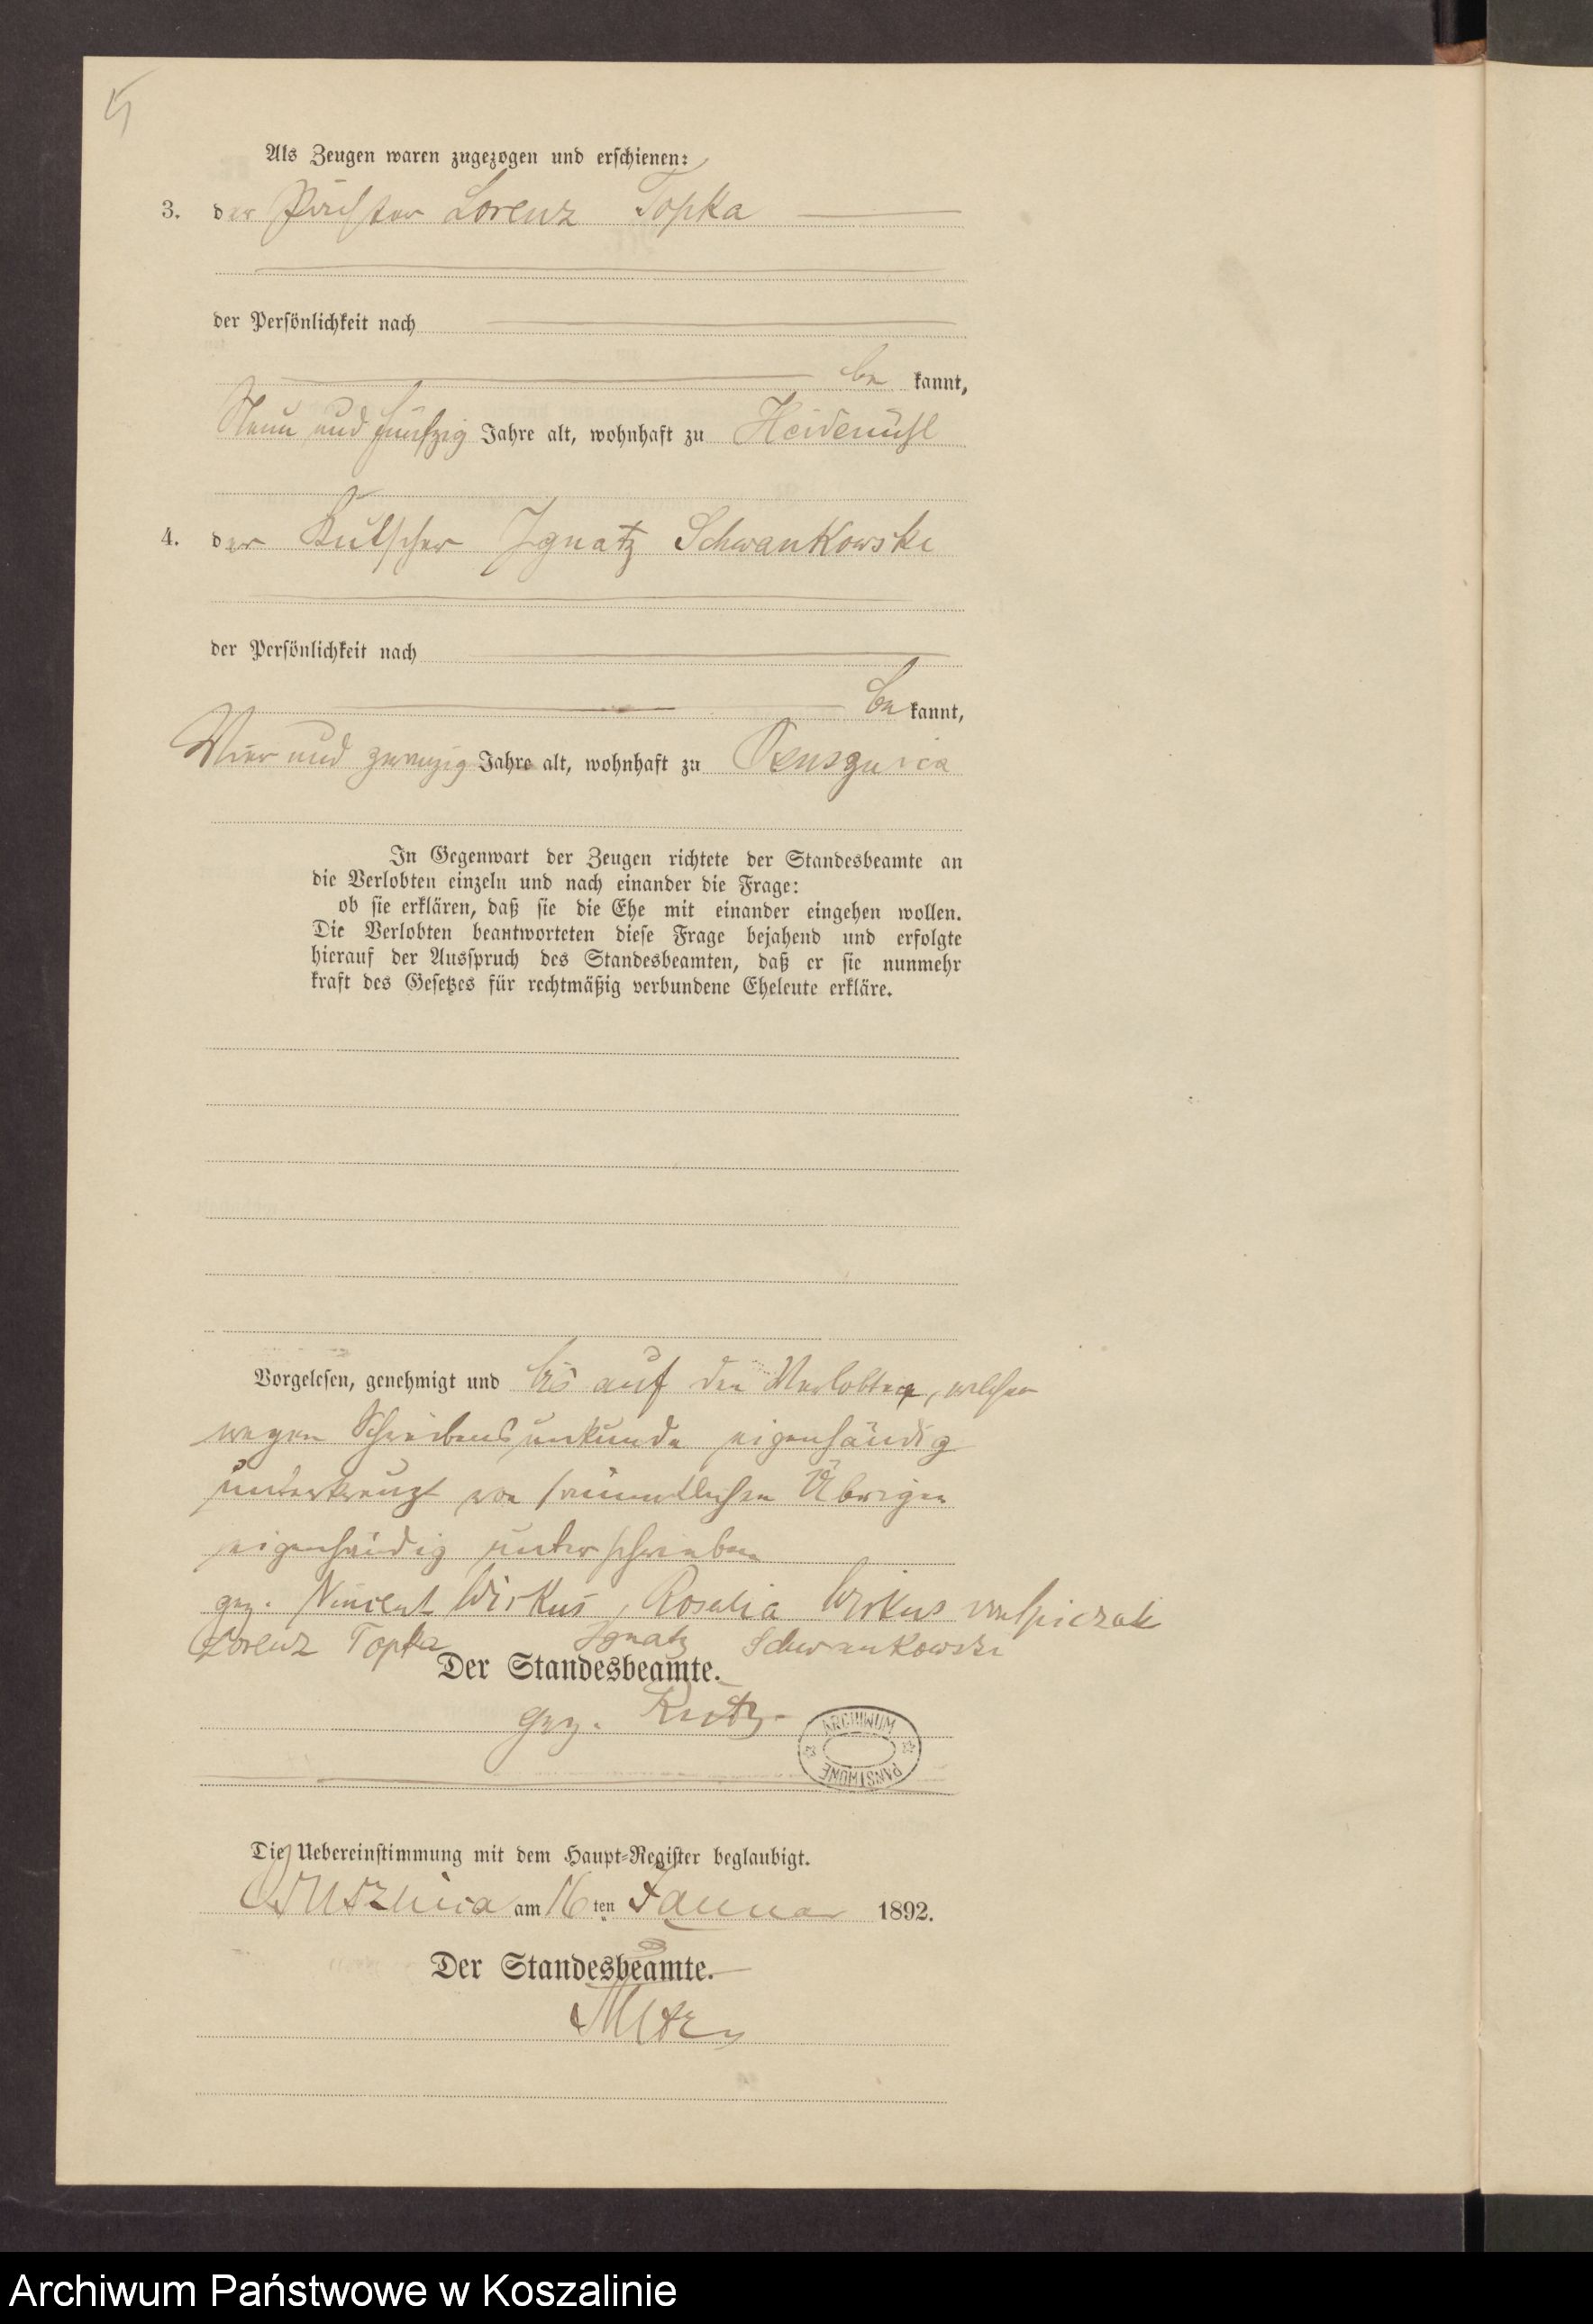 Als Zeugen waren zugezogen und erschienen:
3. der Lorenz Topka
der Persönlichkeit nach
be kannt,
Neun und fünfzig Jahre alt, wohnhaft zu Heidemühl
4. der Kutscher Ignatz Schwankowski
der Persönlichkeit nach
be kannt,
Vier und zwanzig Jahre alt, wohnhaft zu
In Gegenwart der Zeugen richtete der Standesbeamte an
die Verlobten einzeln und nach einander die Frage:
ob sie erklären, daß sie die Ehe mit einander eingehen wollen.
Die Verlobten beantworteten diese Frage bejahend und erfolgte
hierauf der Ausspruch des Standesbeamten, daß er sie nunmehr
kraft des Gesetzes für rechtmäßig verbundene Eheleute erkläre.
Vorgelesen, genehmigt und bis auf den Verlobten, welcher
wegen Schreibensunkunde eigenhändig
unterkreuzt von sämmtlichen Übrigen
eigenhändig unterschrieben
gez. Vincent Wirkus, Rosalia Wirkus
Lorenz Topka Ignatz Schwankowski
Der Standesbeamte.
gez.
ARCHIWUM PAŃSTWOWE
Die Uebereinstimmung mit dem Haupt-Register beglaubigt.
am 16 ten Januar 1892.
Der Standesbeamte.
Archiwum Państwowe w Koszalinie